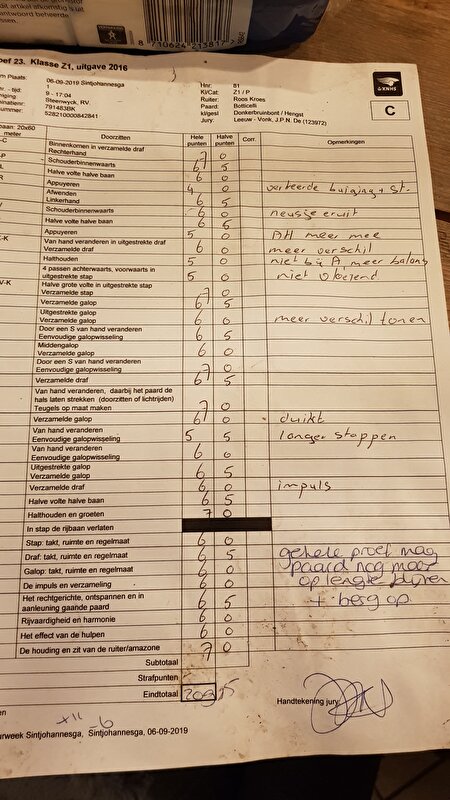 het artikel afkomstig is uit
antwoord beheerde
8 710624 213817
oef 23. Klasse Z1, uitgave 2016
KNHS
C
Plaats: 06-09-2019 Sintjohannesga
1
9 - 17:04
Steenwyck, RV.
791483BK
528210000842841
Hnr: 81
Kl/Cat: Z1 / P
Ruiter: Roos Kroes
Paard: Botticelli
kl/gesl Donkerbruinbont / Hengst
Jury: Leeuw - Vonk, J.P.N. De (123972)
baan: 20x60 Doorzitten Hele punten Halve punten Corr. Opmerkingen
Binnenkomen in verzamelde draf
Rechterhand 7 0
Schouderbinnenwaarts 6 5
Halve volte halve baan 6 0
Appuyeren 4 0 verkeerde buiging + st.
Afwenden
Linkerhand 6 5
Schouderbinnenwaarts 6 0 neusje eruit
Halve volte halve baan 6 5
Appuyeren 5 0 AH meer mee
Van hand veranderen in uitgestrekte draf
Verzamelde draf 6 0 meer verschil
Halthouden 5 0 niet bij A meer balans
4 passen achterwaarts, voorwaarts in
uitgestrekte stap 5 0 niet vloeiend
Halve grote volte in uitgestrekte stap
Verzamelde stap 7 0
Verzamelde galop 6 5
Uitgestrekte galop
Verzamelde galop 6 0 meer verschil tonen
Door een S van hand veranderen
Eenvoudige galopwisseling 6 5
Middengalop
Verzamelde galop 6 0
Door een S van hand veranderen
Eenvoudige galopwisseling 7 0
Verzamelde draf 6 5
Van hand veranderen, daarbij het paard de
hals laten strekken (doorzitten of lichtrijden)
Teugels op maat maken 7 0
Verzamelde galop 6 0 duikt
Van hand veranderen
Eenvoudige galopwisseling 5 5 langer stappen
Van hand veranderen
Eenvoudige galopwisseling 6 0
Uitgestrekte galop
Verzamelde galop 6 5
Verzamelde draf 6 0 impuls
Halve volte halve baan 6 5
Halthouden en groeten 7 0
In stap de rijbaan verlaten
Stap: takt, ruimte en regelmaat 6 0
Draf: takt, ruimte en regelmaat 6 5 gehele proef mag
Galop: takt, ruimte en regelmaat 6 0 paard nog meer
De impuls en verzameling 6 0 op lengte blijven
Het rechtgerichte, ontspannen en in
aanleuning gaande paard 6 5 + berg op
Rijvaardigheid en harmonie 6 0
Het effect van de hulpen 6 0
De houding en zit van de ruiter/amazone 7 0
Subtotaal
Strafpunten
Eindtotaal 203,5
Handtekening jury:
urweek Sintjohannesga, Sintjohannesga, 06-09-2019